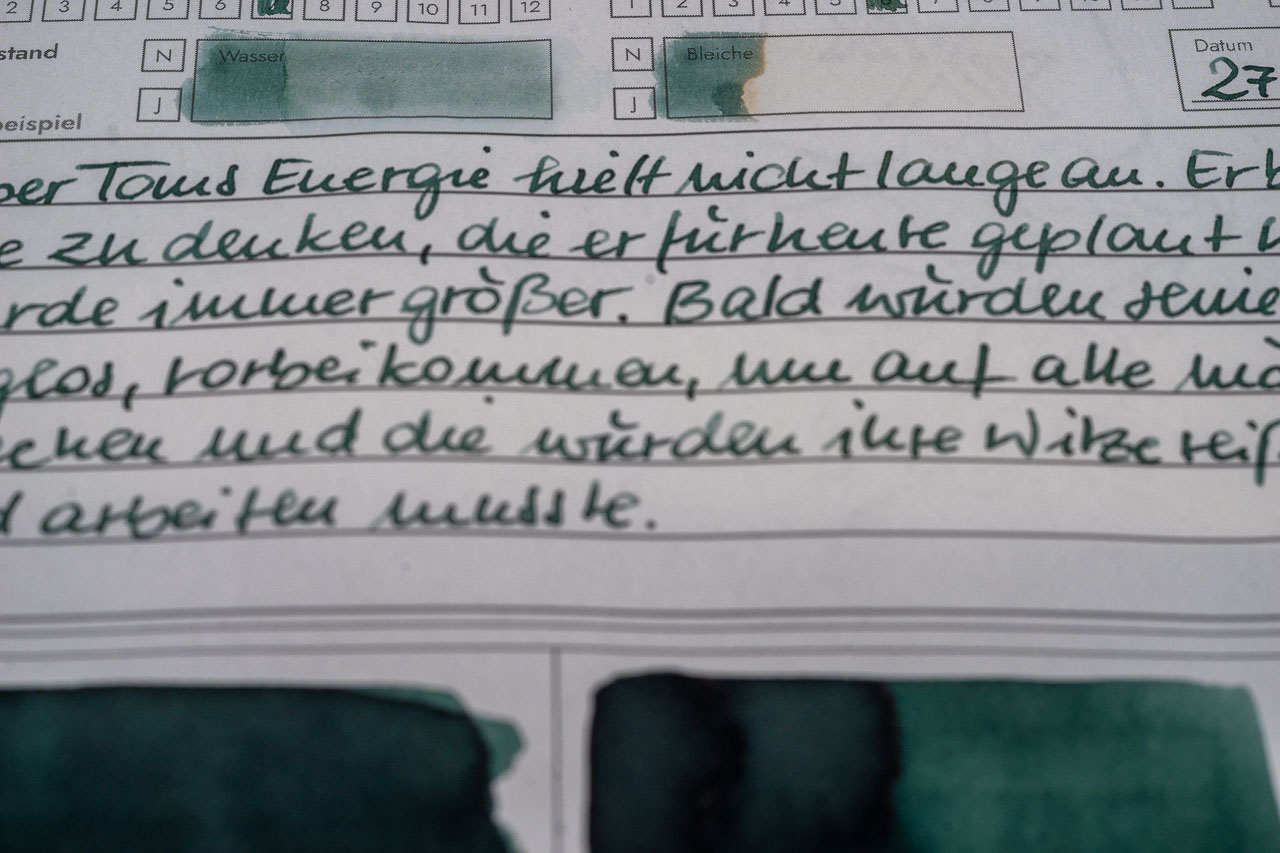 2 3 4 5 6 7 8 9 10 11 12 1 2 3 4 5 6 7
stand N Wasser N Bleiche Datum
J J 27
beispiel
ber Toms Energie hielt nicht lange an. Er b
e zu denken, die er für heute geplant h
rde immer größer. Bald würden seine
glos, vorbeikommen, um auf alle mö
ecken und die würden ihre Witze reiß
d arbeiten musste.